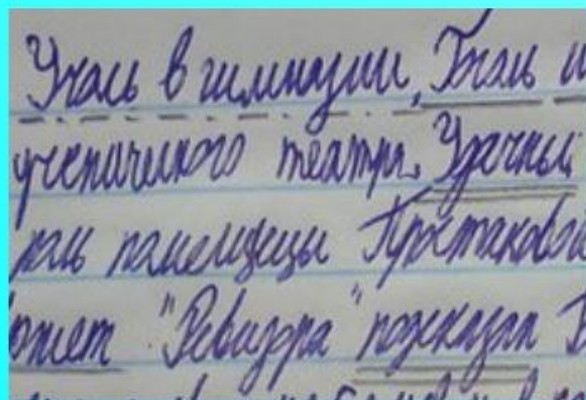 Учась в гимназии, Гоголь и
ученического театра. Удачны
роль помещицы Простаковой
южет "Ревизора" подсказал